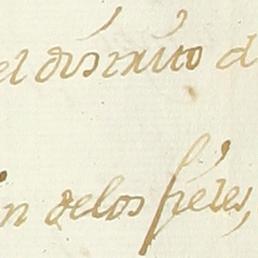 el distrito d
n delos fieles,